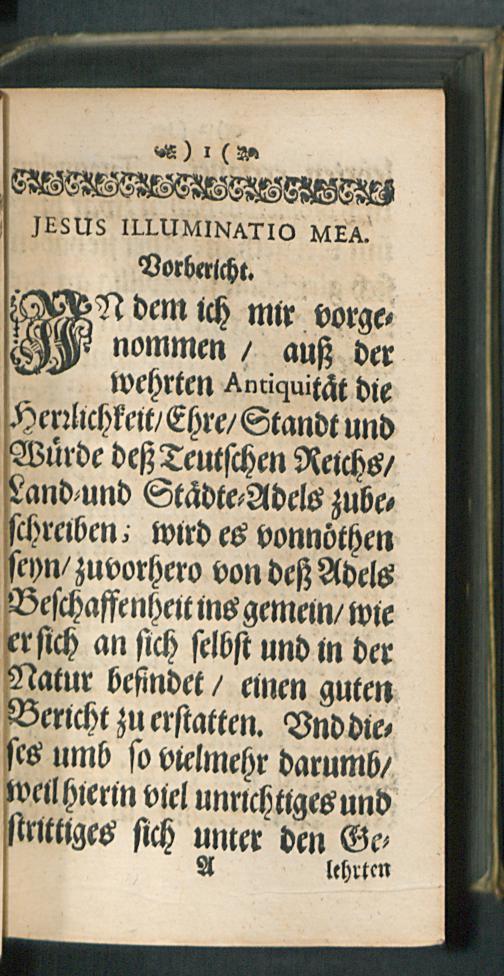 ) 1 (
JESUS ILLUMINATIO MEA.
Vorbericht.
IN dem ich mir vorge-
nommen / auß der
wehrten Antiquität die
Herrlichkeit/ Ehre/ Standt und
Würde deß Teutschen Reichs/
Land-und Städte-Adels zube-
schreiben; wird es vonnöthen
seyn/ zuvorhero von deß Adels
Beschaffenheit ins gemein/ wie
er sich an sich selbst und in der
Natur befindet / einen guten
Bericht zu erstatten. Vnd die-
ses umb so vielmehr darumb/
weil hierin viel unrichtiges und
strittiges sich unter den Ge-
A lehrten